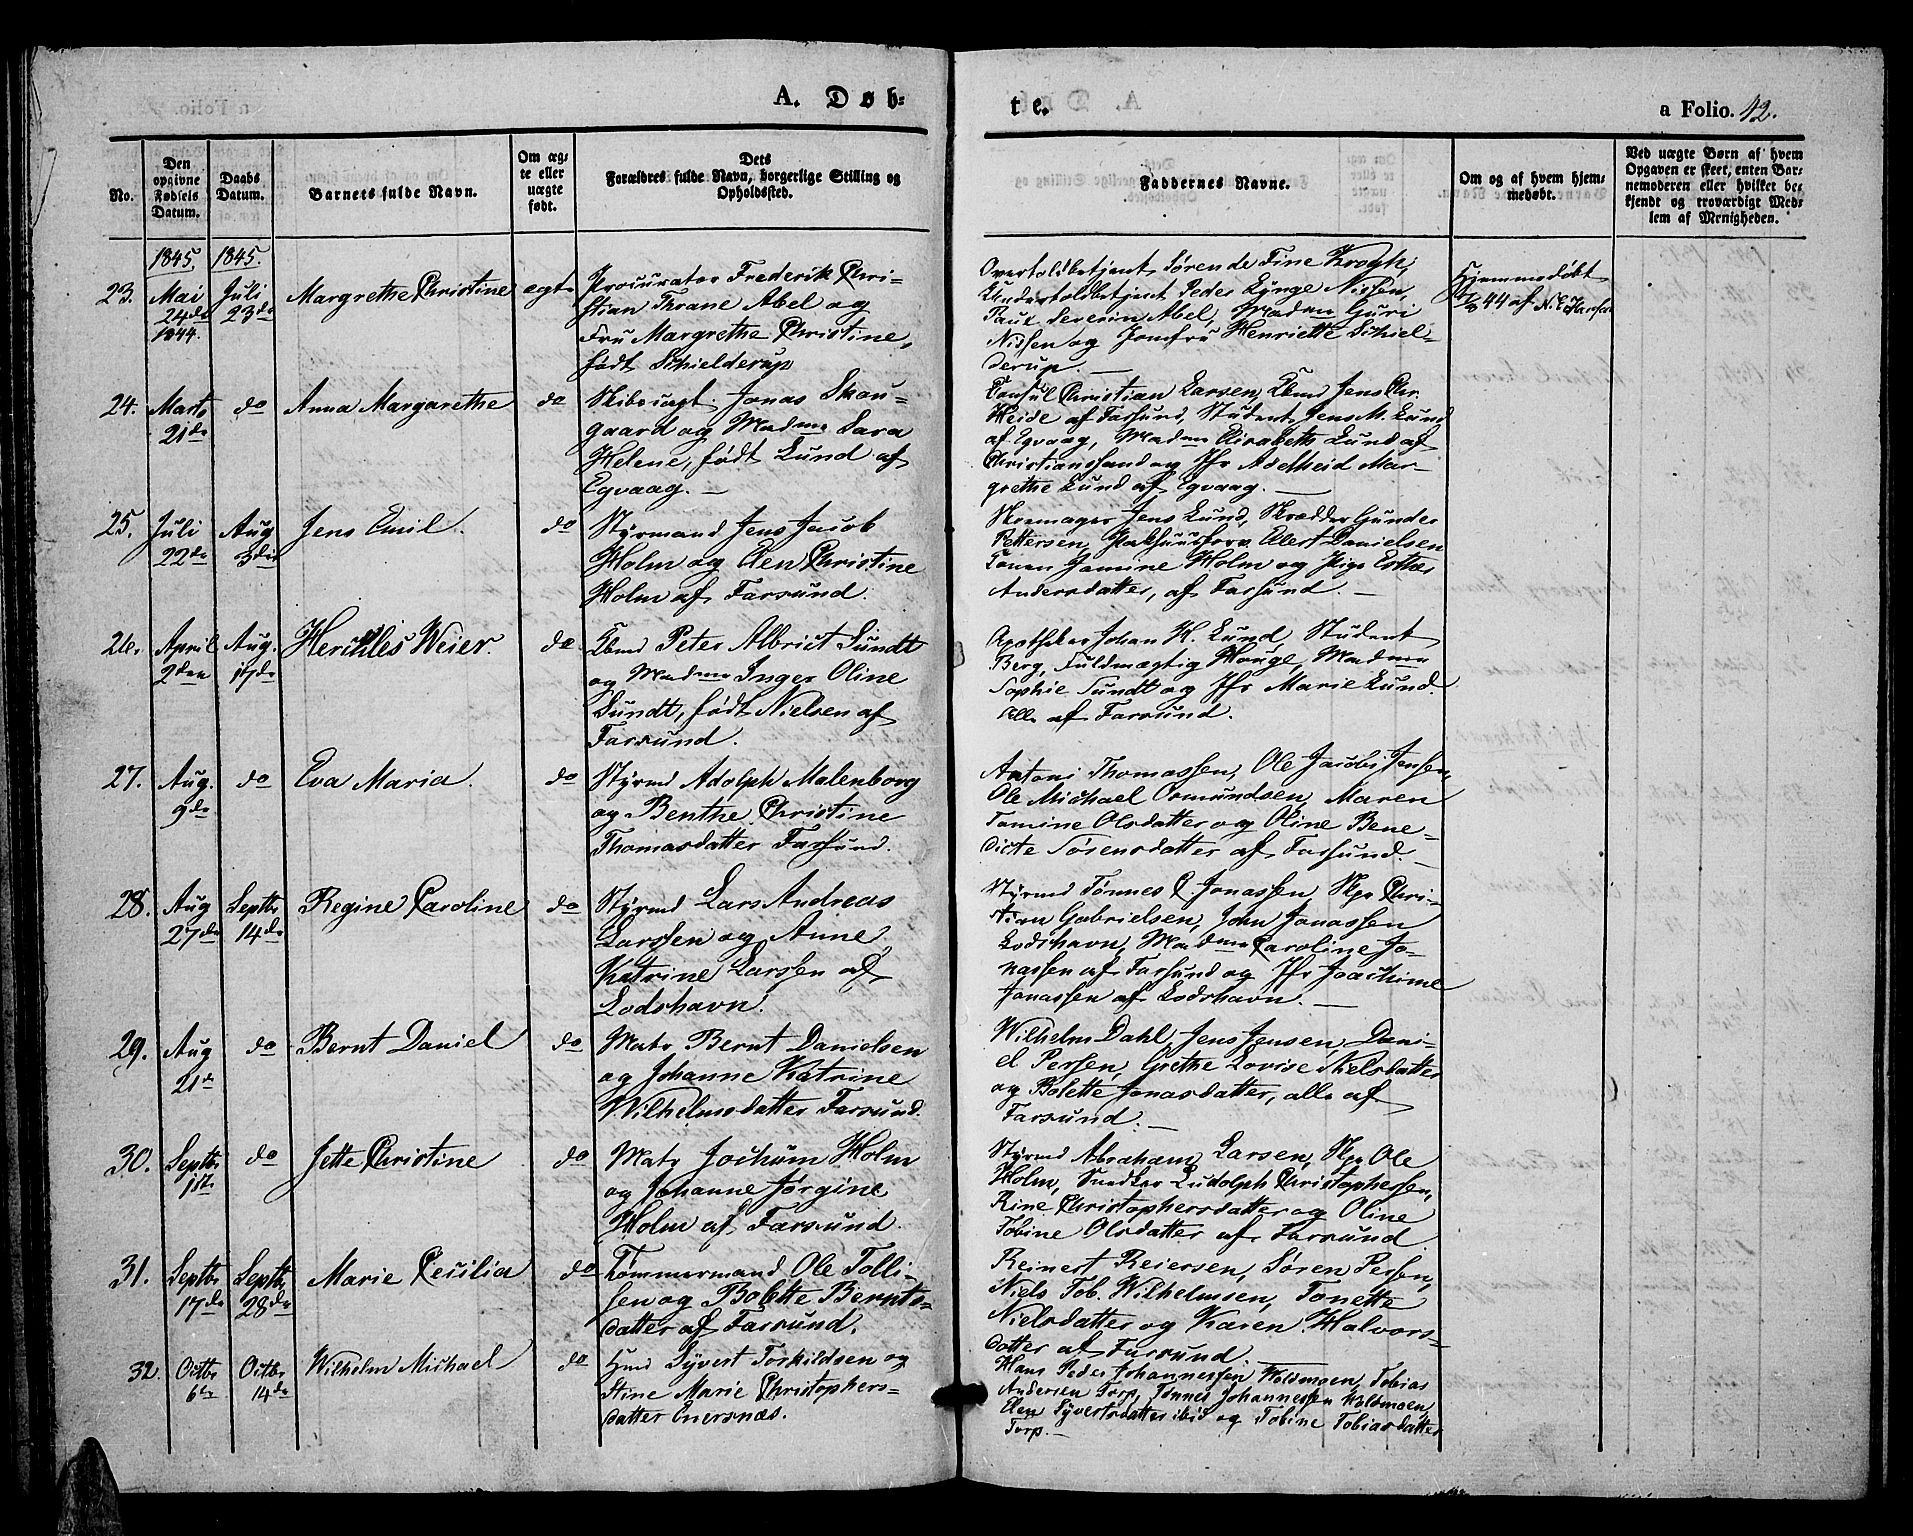 A. Døb-
te.
a Folio. 42.
No.
Den opgivne Fødsels Datum.
Daabs Datum.
Barnets fulde Navn.
Om ægte eller uægte født.
Dets Forældres fulde Navn, borgerlige Stilling og Opholdssted.
Faddernes Navne.
Om og af hvem hjemmedøbt.
Ved uægte Børn af hvem Opgaven er skeet, enten Barnemoderen eller hvilket bekjendt og troværdigt Medlem af Menigheden.
1845. 1845.
23. Mai 24de 1844. Juli 23de Margrethe Christine ægte
Procurator Frederik Chri-
stian Thrane Abel og
Fru Margrethe Christine,
født Schielderup
Overtoldbetjent Søren de Fine Krogh,
Undertoldbetjent Peder Lynge Nissen,
Paul Severin Abel, Madme Guri
Nissen og Jomfru Henriette Schiel-
derup. —
Hjemmedøbt
44 af N. C. Hansen
24. Marts 21de do Anna Margarethe do
Skibscapt. Jonas Skou-
gaard og Madme Sara
Helene, født Lund af
Egvaag. —
Consul Christian Larsen, Kbmd Jens Chr.
Heide af Farsund, Student Jens M. Lund
af Egvaag, Madme Elisabeth Lund af
Christianssand og Jfr Adelheid Mar-
grethe Lund af Egvaag. —
25. Juli 22de Aug 3die Jens Emil. do
Styrmand Jens Jacob
Holm og Elen Christine
Holm af Farsund.
Skomager Jens Lund, Skrædder Gunder
Pettersen, Elert Danielsen
Konen Jamine Holm og Pige Esther
Andersdatter, af Farsund. —
26. April 2den Aug. 17de Herchles Weier. do
Kbmd Peter Albrict Sundt
og Madme Inger Oline
Sundt, født Nielsen af
Farsund.
Apotheker Johan H. Lund, Student
Berg, Fuldmægtig Houge, Madme
Sophie Sundt og Jfr Marie Lund.
Alle af Farsund.
27. Aug. 9de do Eva Maria. do
Styrmd Adolph Malenborg
og Benthe Christine
Thomasdatter Farsund.
Antoni Thomassen, Ole Jacobs Jensen
Ole Michael Osmundsen, Maren
Tomine Olsdatter og Oline Bene-
dicte Sørensdatter af Farsund. —
28. Aug 27de Septbr 14de Regine Caroline do
Styrmd Lars Andreas
Larssen og Anne
Katrine Larssen af
Lodshavn.
Styrmd Tønnes C. Jonassen, Skpr Chri-
stian Gabrielsen, John Jonassen
Lodshavn, Madme Caroline Jo-
nassen af Farsund og Jfr Joachime
Jonassen af Lodshavn. —
29. Aug 21de do Bernt Daniel do
Matr Bernt Danielsen
og Johanne Katrine
Wilhelmsdatter Farsund.
Wilhelm Dahl, Jens Jensen, Dani-
el Perssen, Grethe Lovise Nielsdatter
og Bolette Jonasdatter, alle af
Farsund. —
30. Septbr 1ste do Jette Christine do
Matr Jochum Holm
og Johanne Jørgine
Holm af Farsund.
Styrmd Abraham Larsen, Skpr Ole
Holm, Snedker Ludolph Christophersen,
Rine Christophersdatter og Oline
Tobine Olsdatter af Farsund
31. Septbr 17de Septbr 28de Marie Cecilia do
Tømmermand Ole Tolli-
sen og Bolette Bernts-
datter af Farsund.
Reinert Reiersen, Søren Perssen,
Niels Tob. Wilhelmsen, Tonette
Nielsdatter og Karen Halvors-
datter af Farsund.
32. Octbr 6te Octbr 14de Wilhelm Michael do
Hmd Syvert Torkildsen og
Stine Marie Christophers-
datter Enersnæs.
Hans Peder Johannessen Woldmoen, Tobias
Andersen Torp, Tønnes Johannessen Woldmoen,
Elen Syvertsdatter ibid og Tobine Tobiasdatter
Torp. —